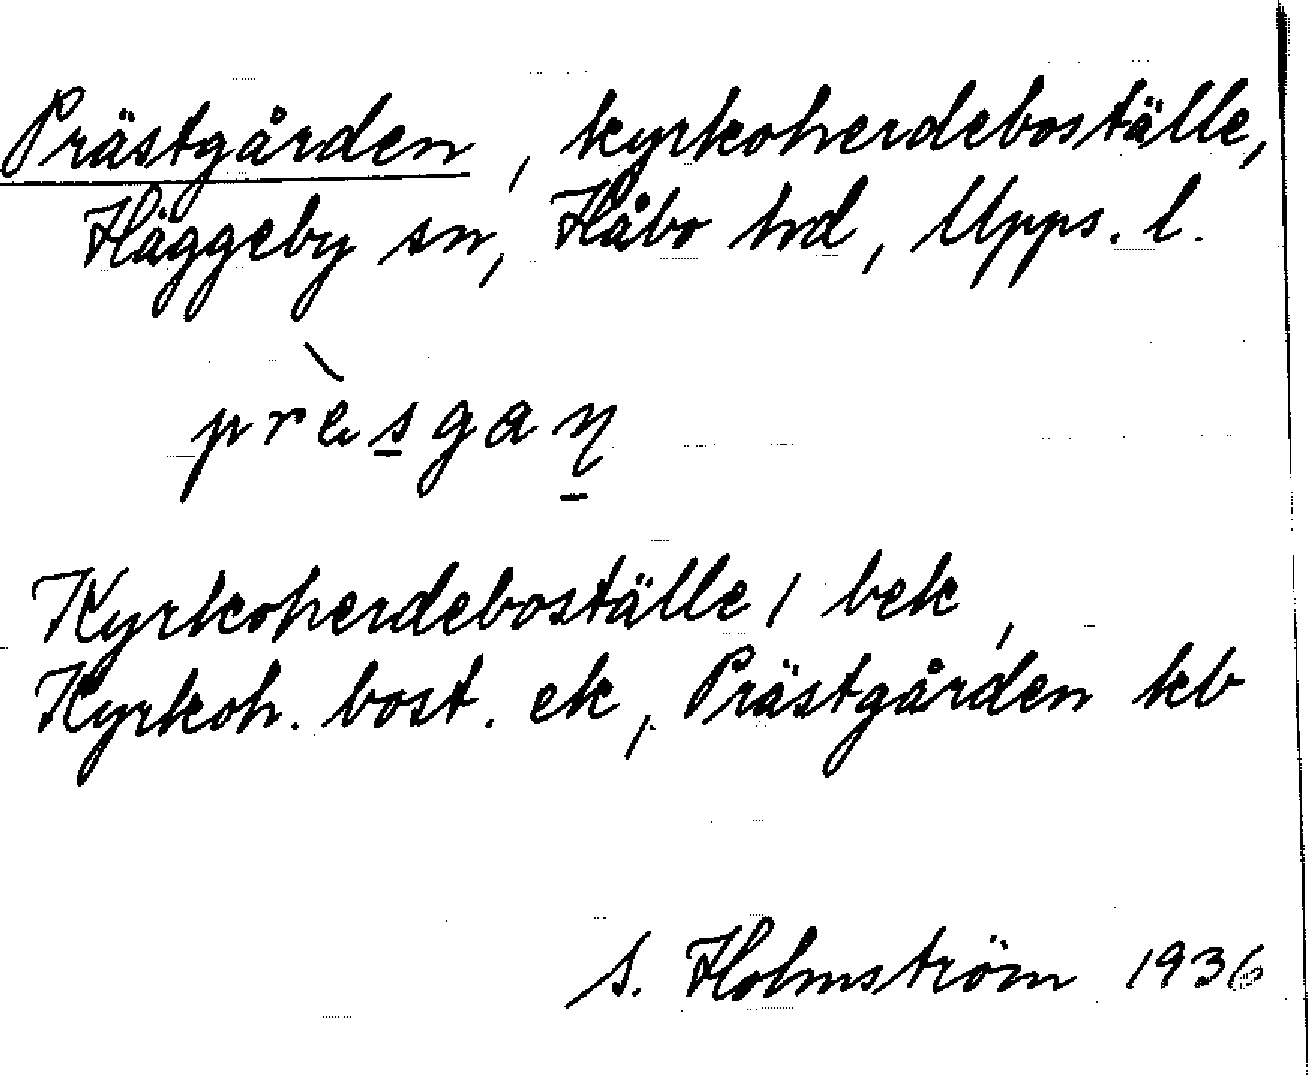 Prästgården, kyrkoherdeboställe,
Häggeby sn, Håbo hd, Upps. l.
prèsgaɳ
Kyrkoherdeboställe / bek,
Kyrkoh. bost. ek, Prästgården kb
S. Holmström 1936